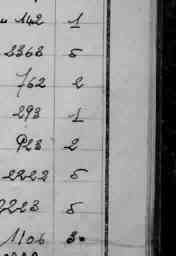 142 1
2368 5
762 2
293 1
923 2
2222 5
2223 5
1106 3